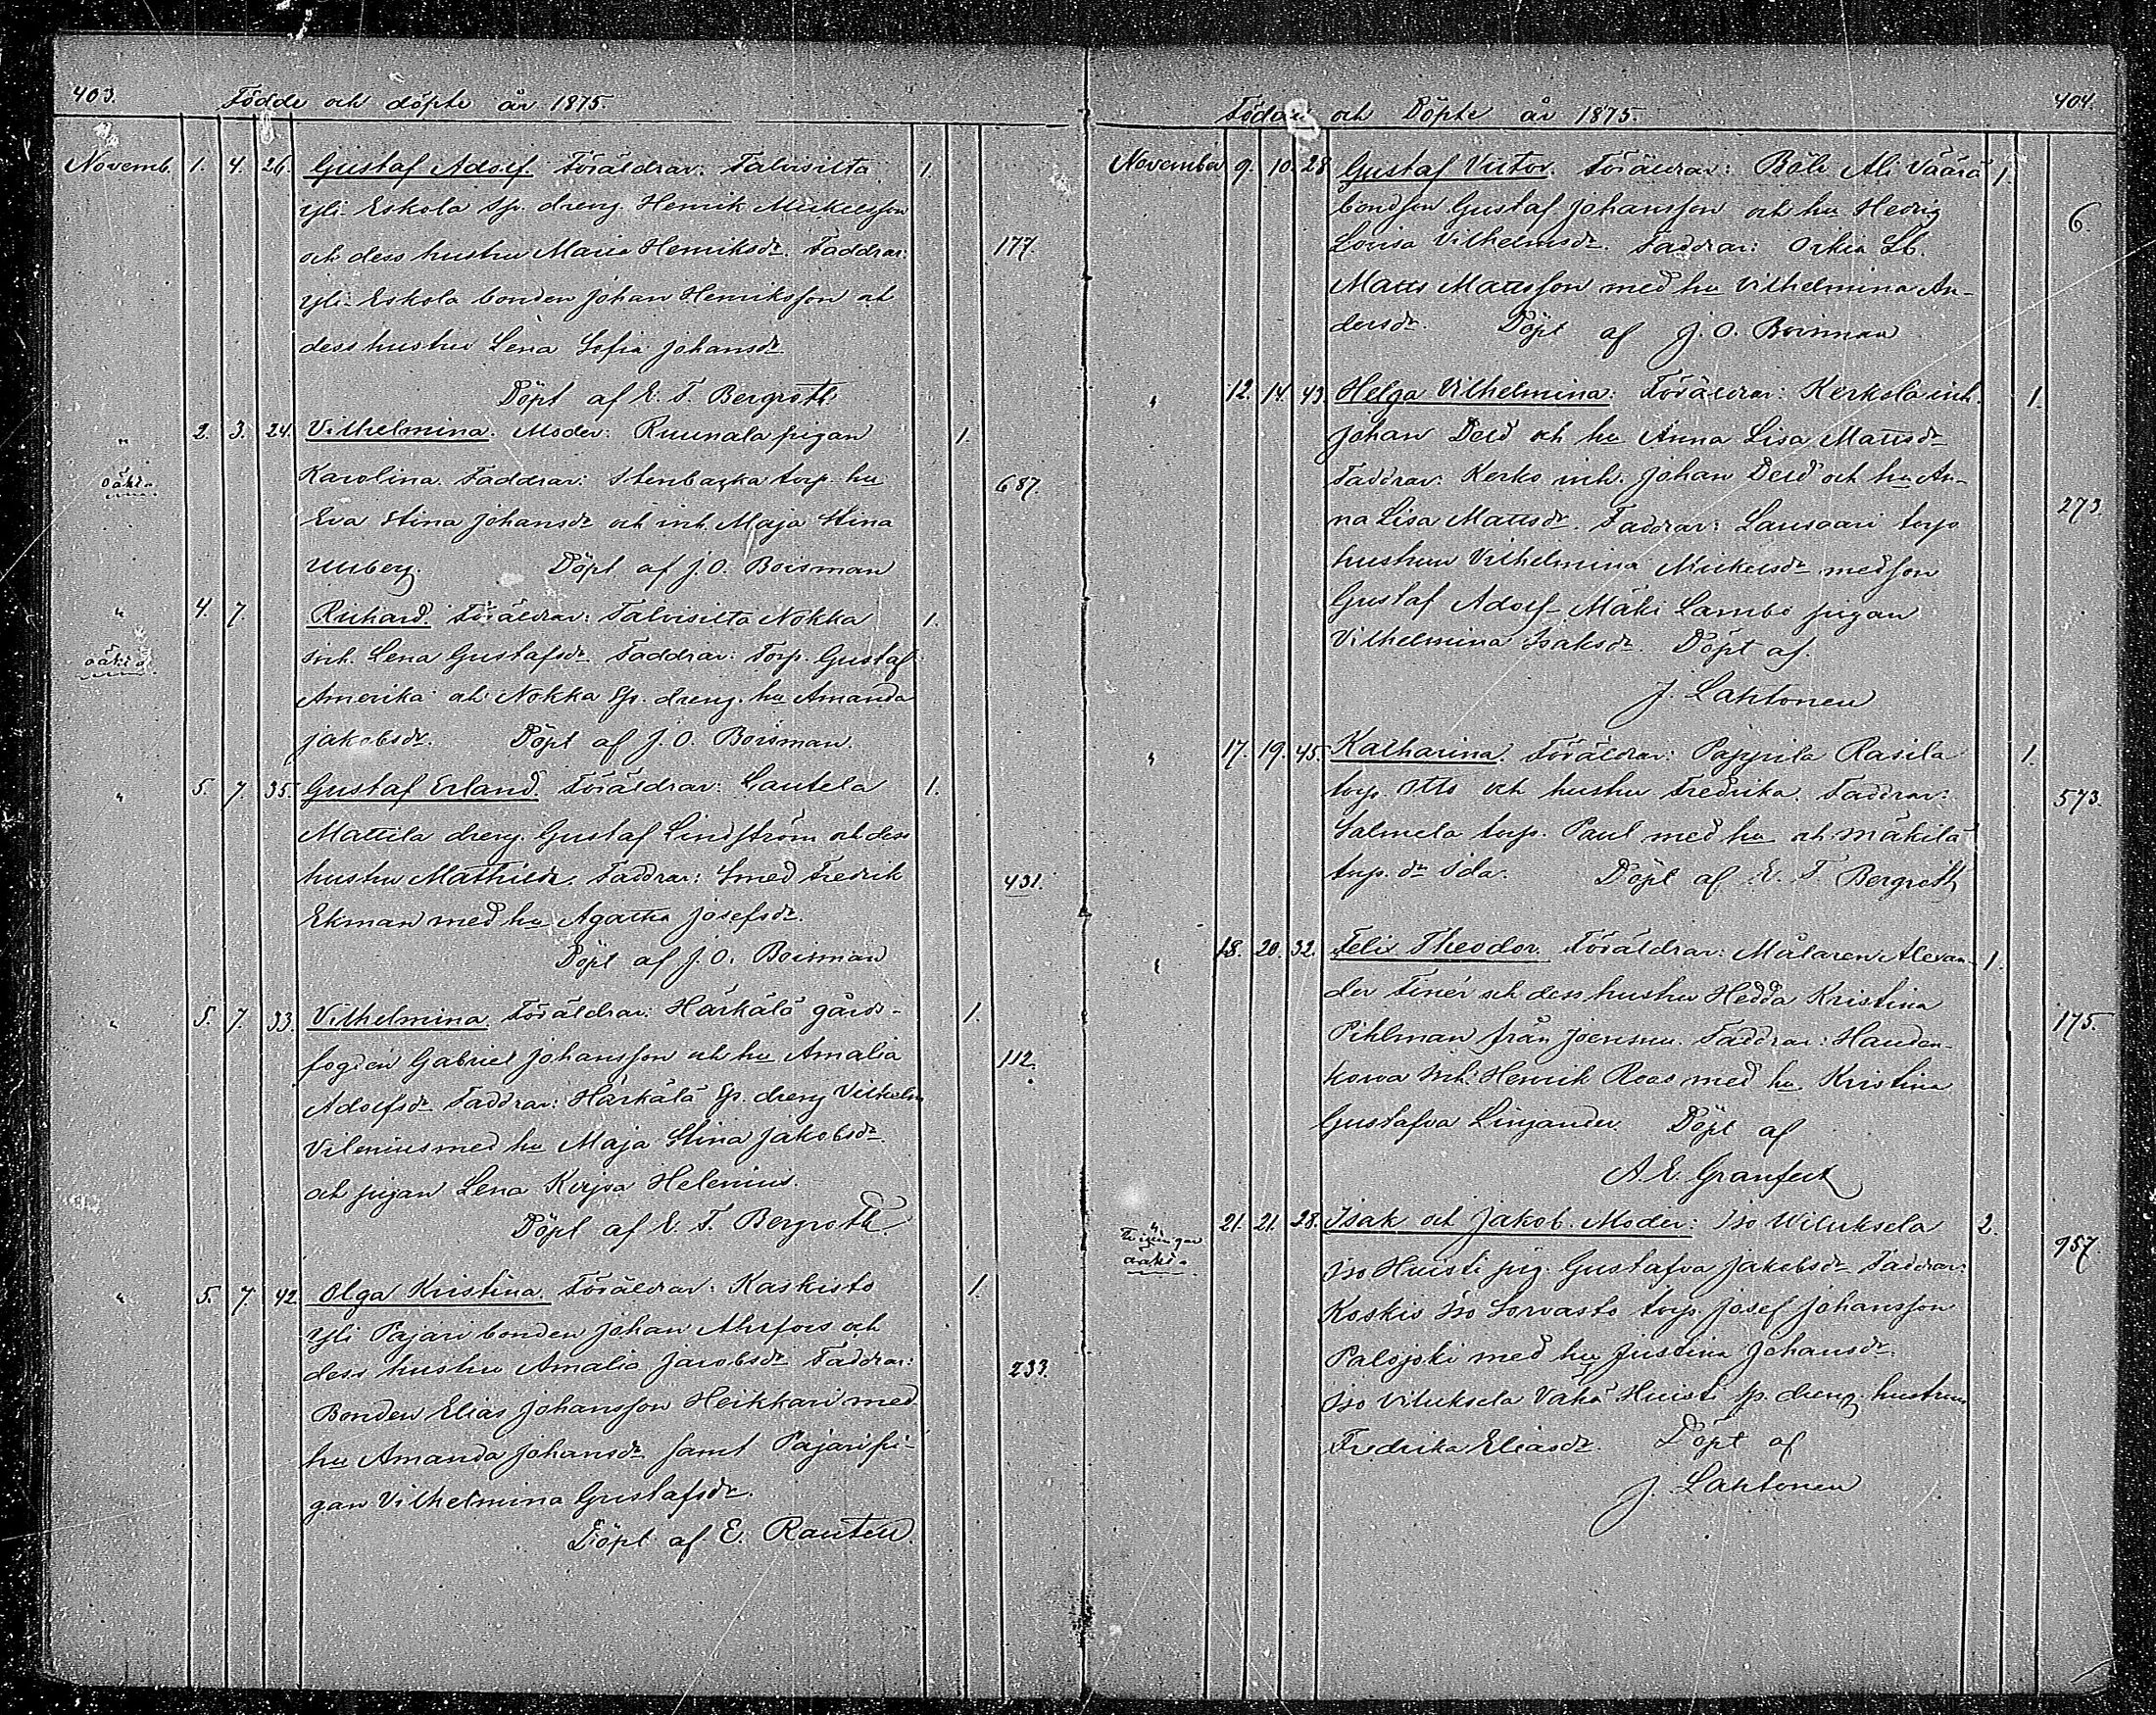 403.
Födde och döpte år 1875.
Novemb. 1. 4. 26. Gustaf Adolf. Föräldrar: Talvisilta 1.
Yli Eskola sp. dreng. Henrik Mickelsson
och dess hustru Maria Henriksdr. Faddrar: 177.
Yli Eskola bonden Johan Henriksson och
dess hustru Lena Sofia Johansdr.
Döpt af E. F. Bergroth
" 2. 3. 24. Vilhelmina. Moder: Ruunala pigan 1.
oäkta Karolina. Faddrar: Stenbacka torp. hu 687.
Eva Stina Johansdr och inh. Maja Stina
Ulberg. Döpt af J. O. Boisman
" 4. 7. Richard. Föräldrar: Talvisilta Nokka 1.
oäkta inh. Lena Gustafsdr. Faddrar: Torp. Gustaf
Amerika och Nokka sp. dreng. hu Amanda
Jakobsdr. Döpt af J. O. Boisman.
" 5. 7. 35. Gustaf Erland. Föräldrar: Lautela 1.
Mattila dreng. Gustaf Lindström och dess
hustru Mathilda. Faddrar: Smed Fredrik 431.
Ekman med hu Agatha Josefsdr.
Döpt af J. O. Boisman
" 5. 7. 33. Vilhelmina. Föräldrar: Härkälä gårds- 1.
fogden Gabriel Johansson och hu Amalia 112.
Adolfsdr. Faddrar: Härkälä sp. dreng Vilhelm
Vilenius med hu Maja Stina Jakobsdr
och pigan Lena Kirjva Helenius.
Döpt af E. F. Bergroth.
" 5. 7. 42. Olga Kristina. Föräldrar: Kaskisto 1.
Yli Pajari bonden Johan Ahlfors och
dess hustru Amalia Jacobsdr. Faddrar: 233.
Bonden Elias Johansson Heikkari med
hu Amanda Johansdr samt Pajari pi-
gan Vilhelmina Gustafsdr.
Döpt af E. Rautell.
404.
Födde och Döpte år 1875.
November 9. 10. 28 Gustaf Victor. Föräldrar: Böle Ali Väärä 1.
bondson Gustaf Johansson och hu Hedvig 6.
Lovisa Vilhelmsdr. Faddrar: Orkia Lb.
Matts Mattsson med hu Vilhelmina An-
dersdr. Döpt af J. O. Boisman
" 12. 14. 43. Helga Vilhelmina: Föräldrar: Kerkola inh. 1.
Johan Deld och hu Anna Lisa Mattsdr
Faddrar: Kerko inh. Johan Deld och hu An-
na Lisa Mattsdr. Faddrar: Lausaari torp 273.
hustrun Vilhelmina Mickelsdr med son
Gustaf Adolf Mäki Lambo pigan
Vilhelmina Isaksdr. Döpt af.
J. Lahtonen
" 17. 19. 45. Katharina. Föräldrar: Pappila Rasila 1.
torp. Otto och hustru Fredrika. Faddrar: 573.
Salmela torp. Paul med hu och Mäkilä
torp. dr Ida. Döpt af E. F. Bergroth
" 18. 20. 32. Felix Theodor. Föräldrar: Målaren Alexan- 1.
der Finér och dess hustru Hedda Kristina
Pihlman från Joensuu. Faddrar: Hauden- 175.
korva inh. Henrik Roos med hu Kristina
Gustafva Linjander. Döpt af
A. E. Granfelt
Tvillingar 21. 21. 28. Isak och Jakob. Moder: Iso Wiluksela 2.
oäkta Iso Huisti pig. Gustafva Jakobsdr Faddrar: 957.
Koskis Iso Sorvasto torp Josef Johansson
Palojoki med hu Justina Johansdr.
Iso Viluksela Vähä Huisti sp. dreng. hustrun
Fredrika Eliasdr. Döpt af
J. Lahtonen